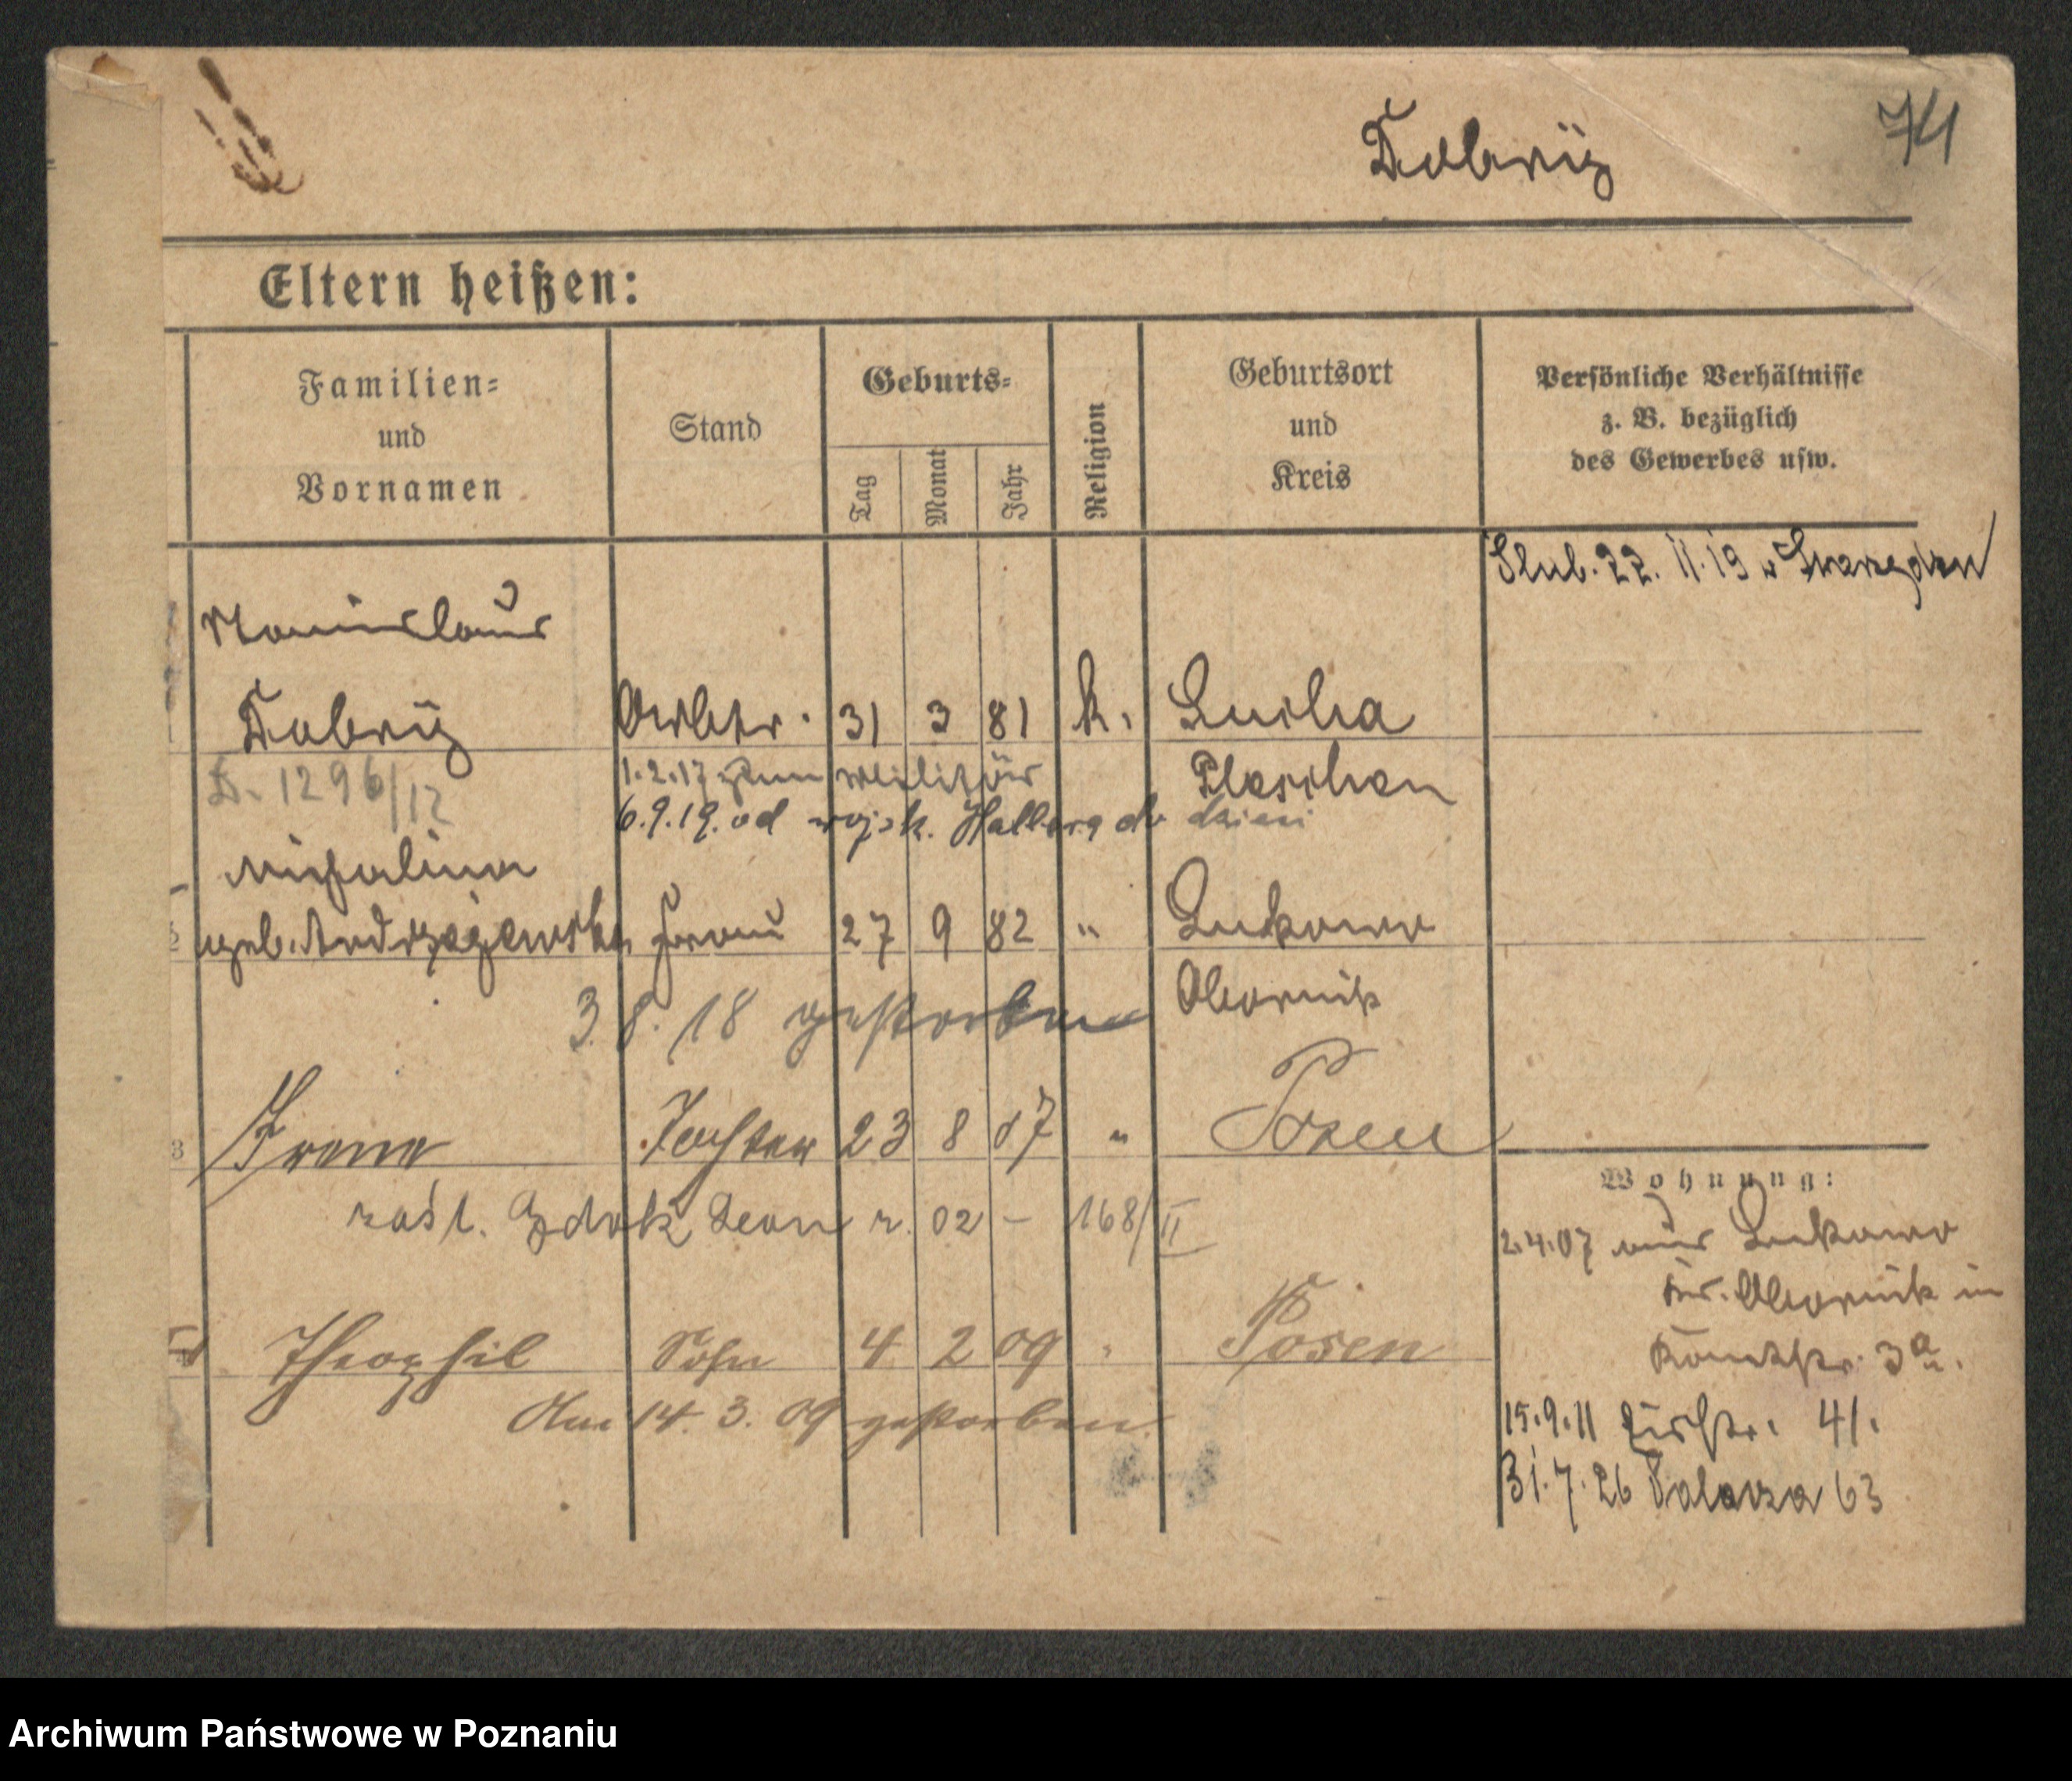 74
Dobrij
Eltern heißen:
Familien=
und
Vornamen
Stand
Geburts=
Tag
Monat
Jahr
Religion
Geburtsort
und
Kreis
Persönliche Verhältnisse
z. B. bezüglich
des Gewerbes usw.
Slub. 22. 11. 19 w
Stanislaus
Dobrij Arbtr. 31 3 81 k.
D. 1296/12 1.2.17 zum Militär
6.9.19. od wojsk. Hallera do dzieci
Michalina
geb. Andrzejewska Frau 27 9 82 " Lukowo
3. 8. 18 gestorben Obornik
3 Irene Tochter 23 8 07 " Posen
Wohnung:
zaśl. Leon r. 02 - 168/II
2.4.07 aus Lukowo
Kr. Obornik in
3a.
4 Theophil Sohn 4 2 09 " Posen
Am 14. 3. 09 gestorben.
15.9.11 41.
31.7.26 Palacza 63
Archiwum Państwowe w Poznaniu